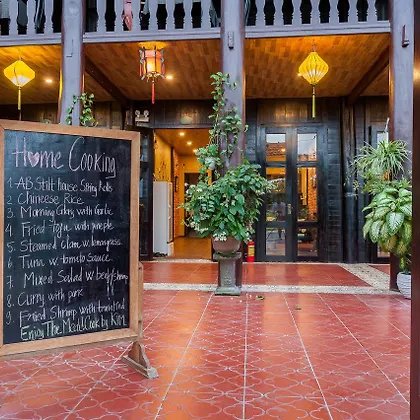 Home Cooking
1 AB Stilt house String Rolls
2 Chineese Rice
3 Morning Glory with Garlic
4 Fried Tofu with
5 Steamed clam w lemongrass
6 Tuna w tomato sauce
7 Mixed Salad w beef/shrimp
8 Curry with pork
9 Fried Shrimp with
Enjoy The Meal Cook by Kim